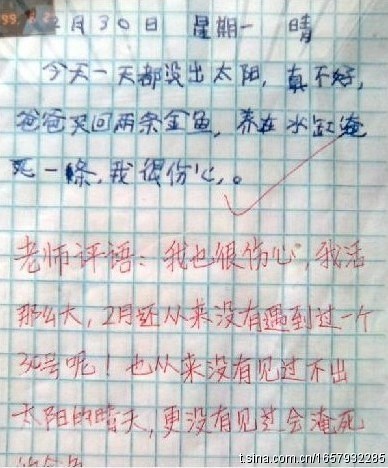 2月30日 星期一 晴
今天一天都没出太阳，真不好，
爸爸买回两条金鱼，养在水缸淹
死一條，我很伤心。
老师评语：我也很伤心，我活
那么大，2月还从来没有遇到过一个
30号呢！也从来没有见过不出
太阳的晴天，更没有见过会淹死
的金鱼
t.sina.com.cn/1657932285